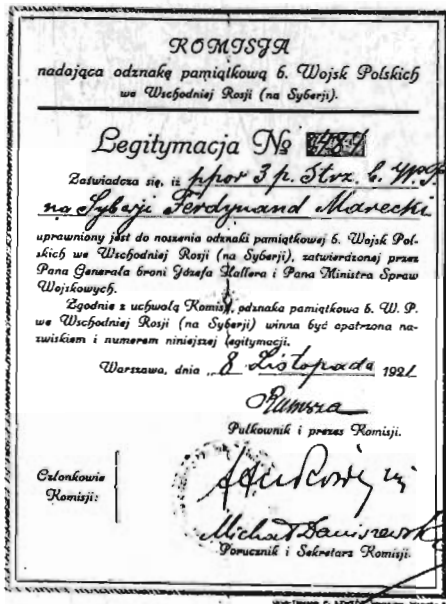 KOMISJA
nadająca odznakę pamiątkową b. Wojsk Polskich
we Wschodniej Rosji (na Syberji).
Legitymacja №
Zaświadcza się, iż ppor 3 p. Strz. b. W.P.
na Syberji Ferdynand Marecki
uprawniony jest do noszenia odznaki pamiątkowej b. Wojsk Pol-
skich we Wschodniej Rosji (na Syberji), zatwierdzonej przez
Pana Generała broni Józefa Hallera i Pana Ministra Spraw
Wojskowych.
Zgodnie z uchwałą Komisji, odznaka pamiątkowa b. W. P.
we Wschodniej Rosji (na Syberji) winna być opatrzona na-
zwiskiem i numerem niniejszej legitymacji.
Warszawa, dnia 8 Listopada 1921
Rumsza
Pułkownik i prezes Komisji.
Członkowie
Komisji:
Michał Daniszewski
Porucznik i Sekretarz Komisji.